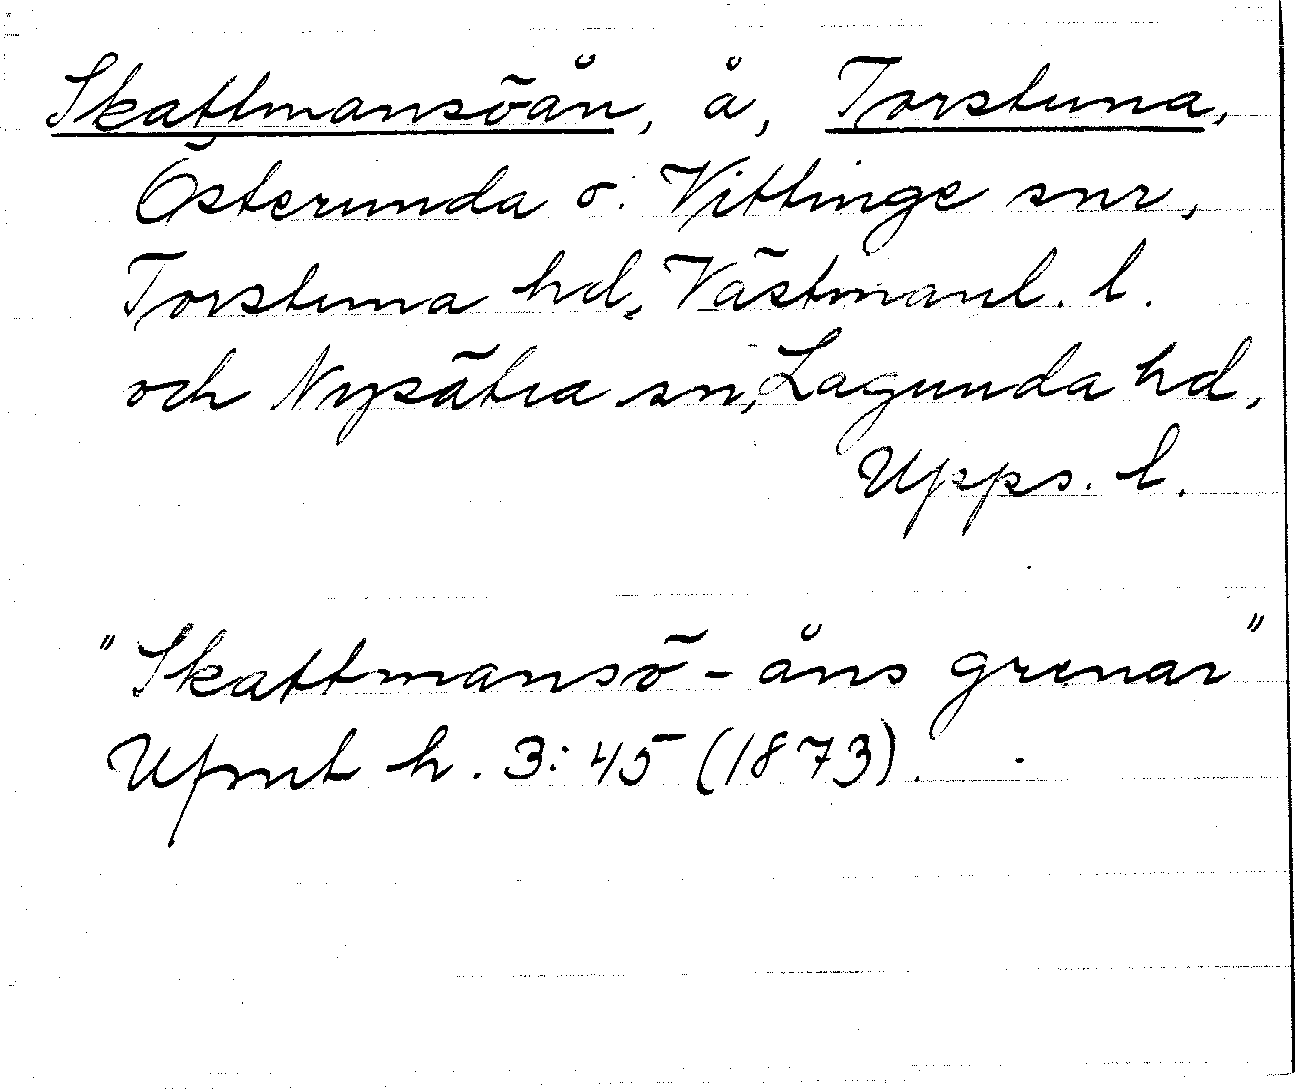 Skattmansöån, å, Torstuna,
Österunda o. Vittinge snr,
Torstuna hd, Västmanl. l.
och Nysätra sn, Lagunda hd,
Upps. l.
"Skattmansö-åns grenar"
Ufmt h. 3:45 (1873).